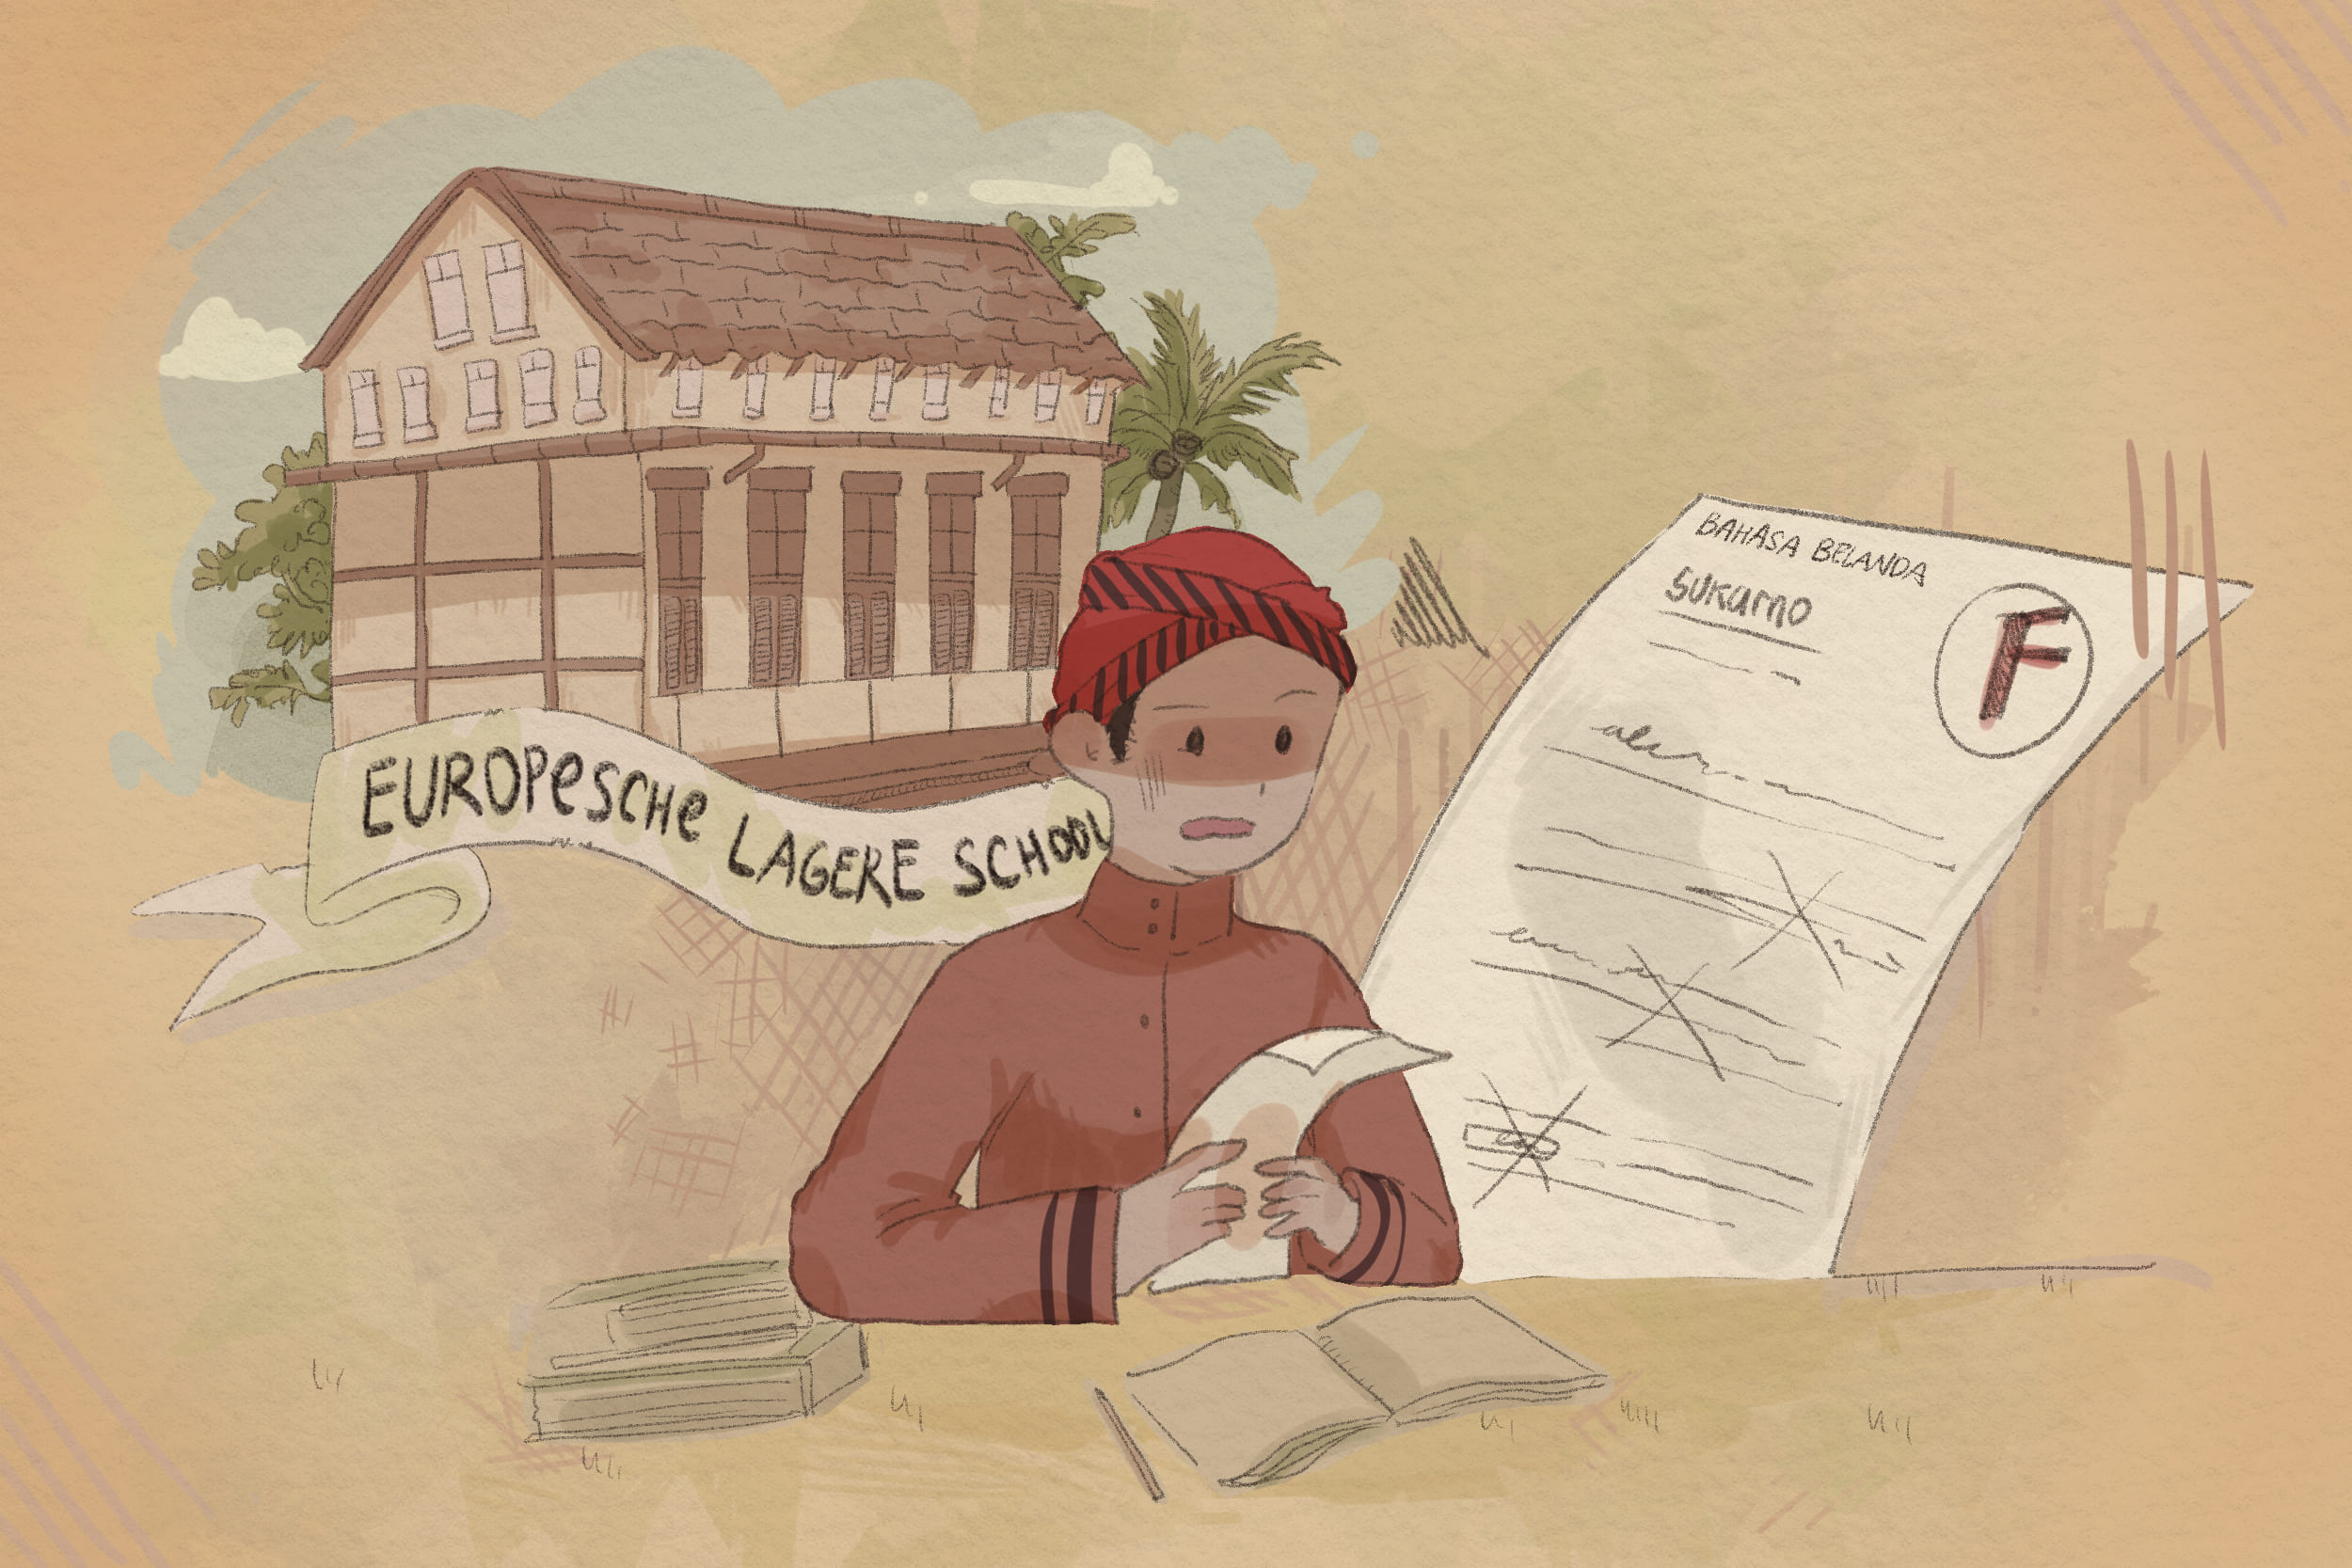 EUROPESCHE LAGERE SCHOOL
BAHASA BELANDA
Sukarno
F